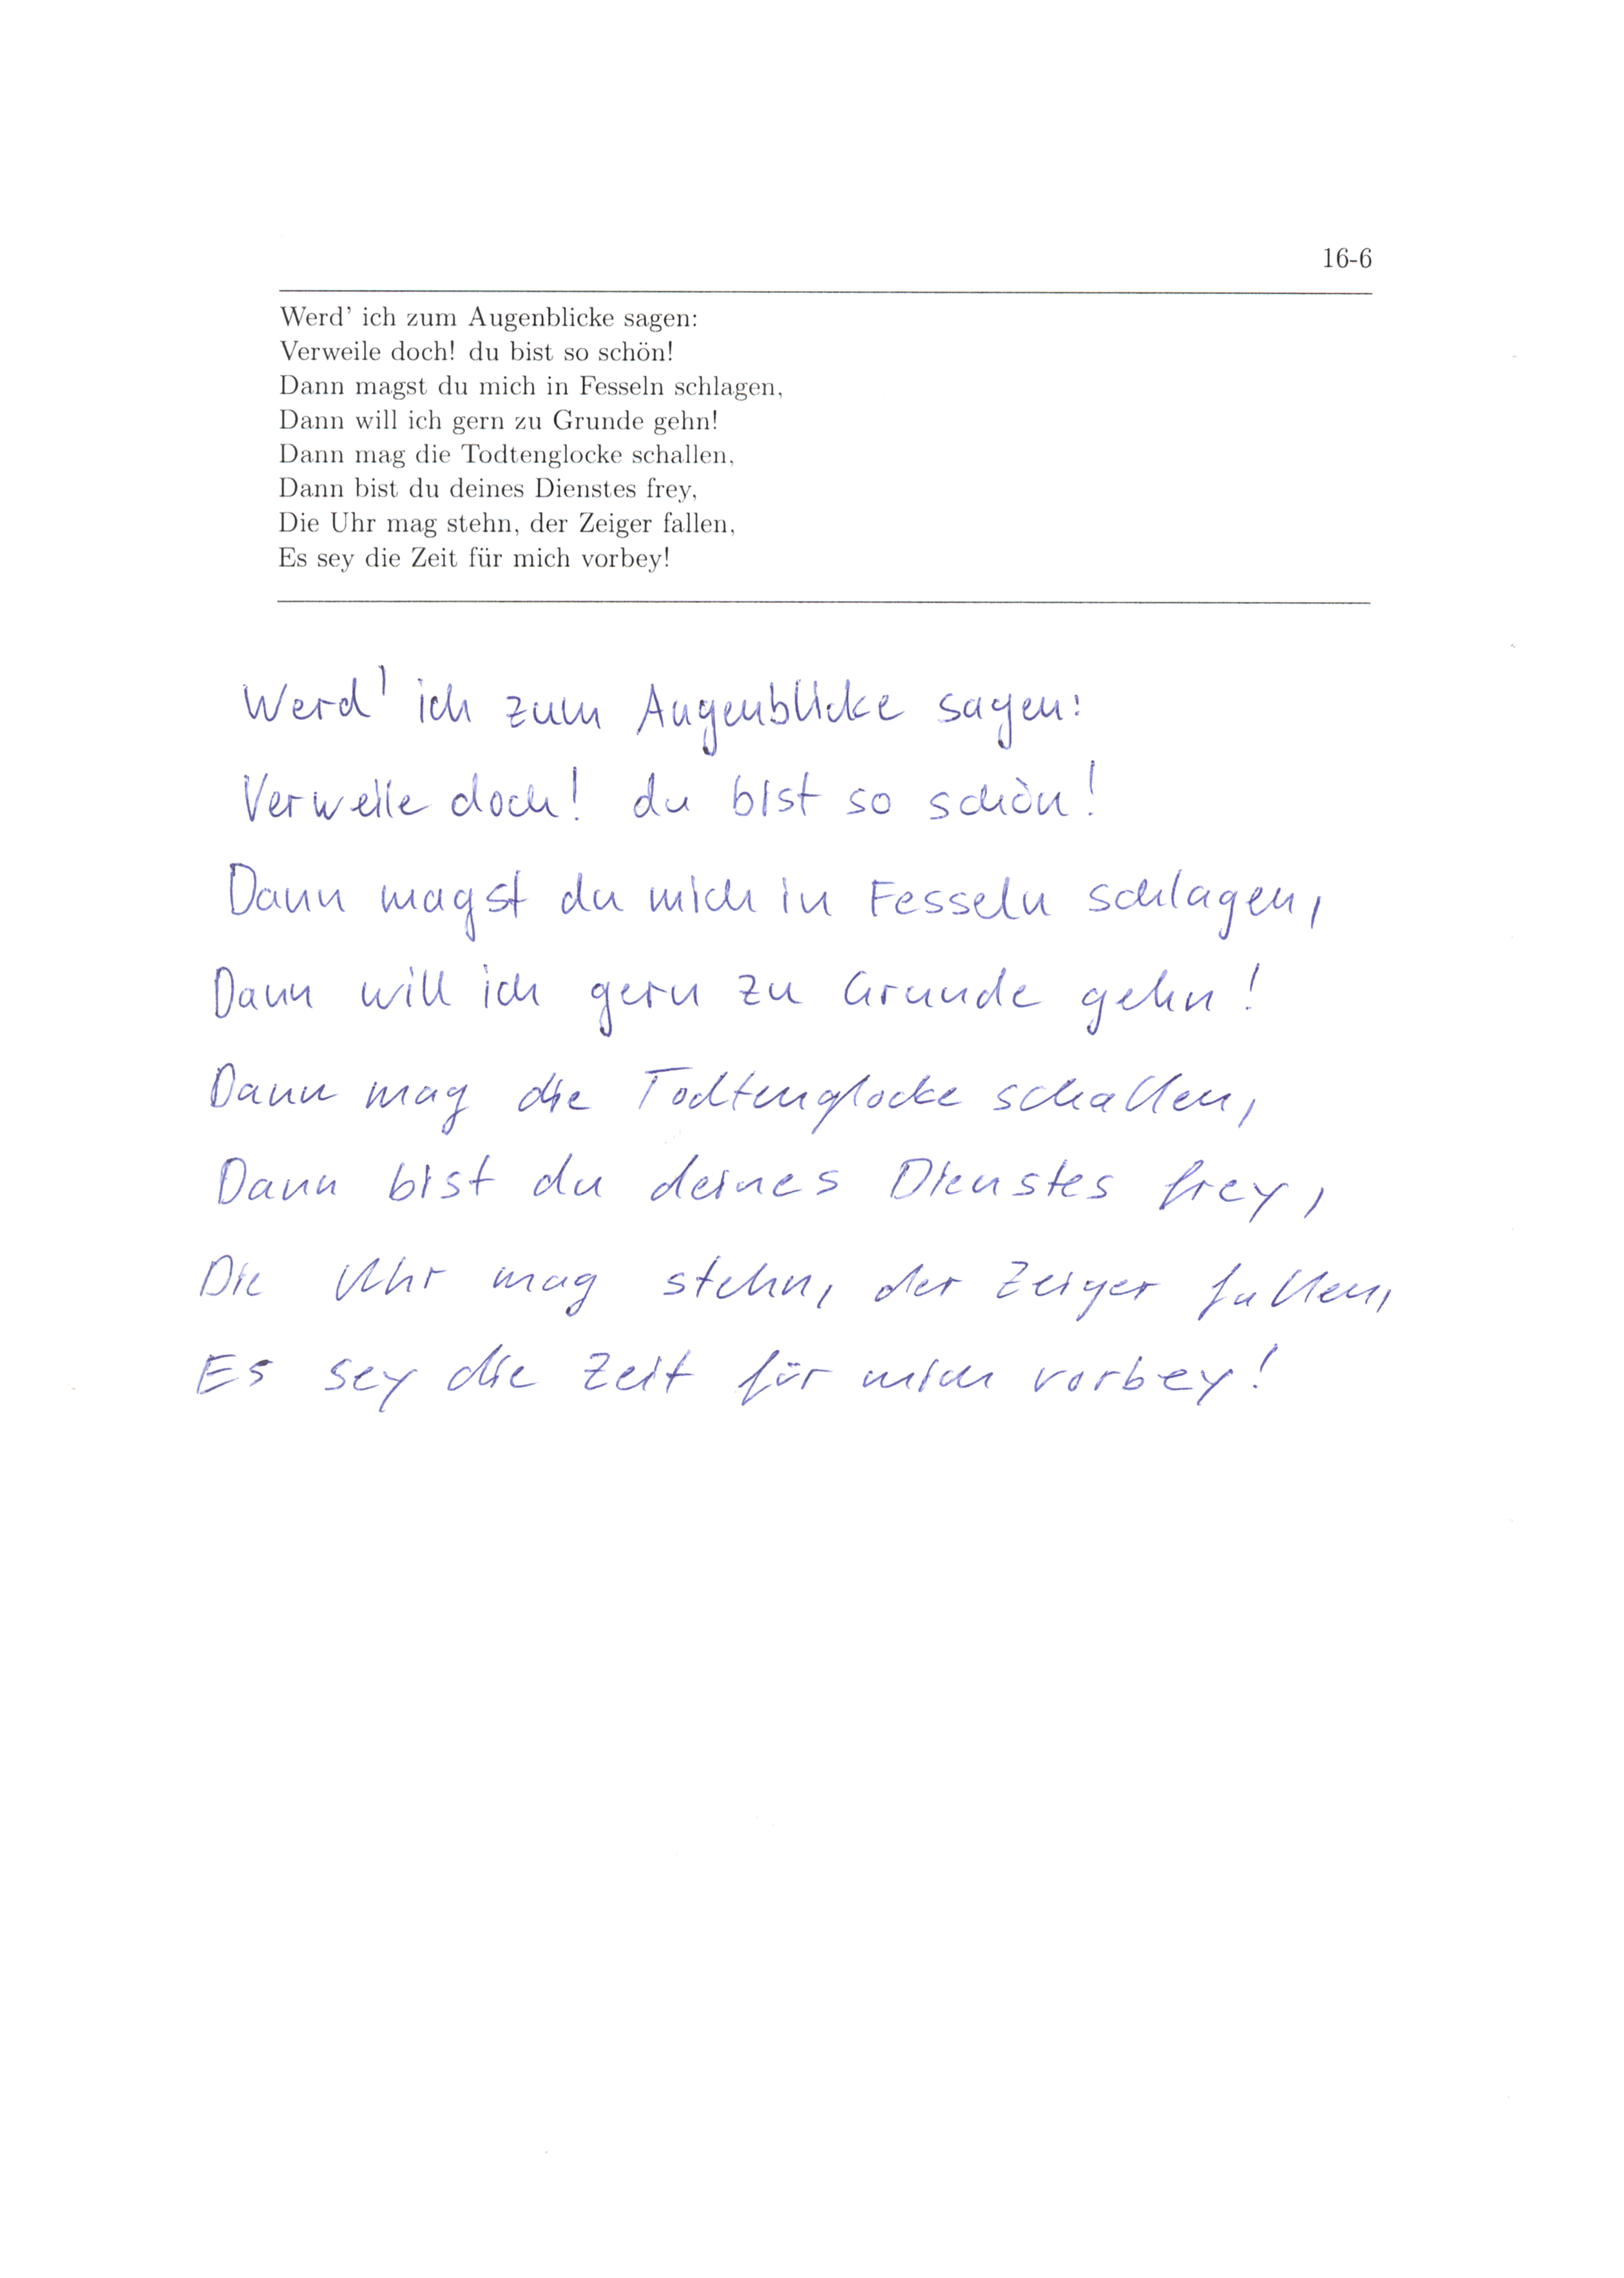 16-6
Werd' ich zum Augenblicke sagen:
Verweile doch! du bist so schön!
Dann magst du mich in Fesseln schlagen,
Dann will ich gern zu Grunde gehn!
Dann mag die Todtenglocke schallen,
Dann bist du deines Dienstes frey,
Die Uhr mag stehn, der Zeiger fallen,
Es sey die Zeit für mich vorbey!
Werd' ich zum Augenblicke sagen:
Verweile doch! du bist so schön!
Dann magst du mich in Fesseln schlagen,
Dann will ich gern zu Grunde gehn!
Dann mag die Todtenglocke schallen,
Dann bist du deines Dienstes frey,
Die Uhr mag stehn, der Zeiger fallen,
Es sey die Zeit für mich vorbey!